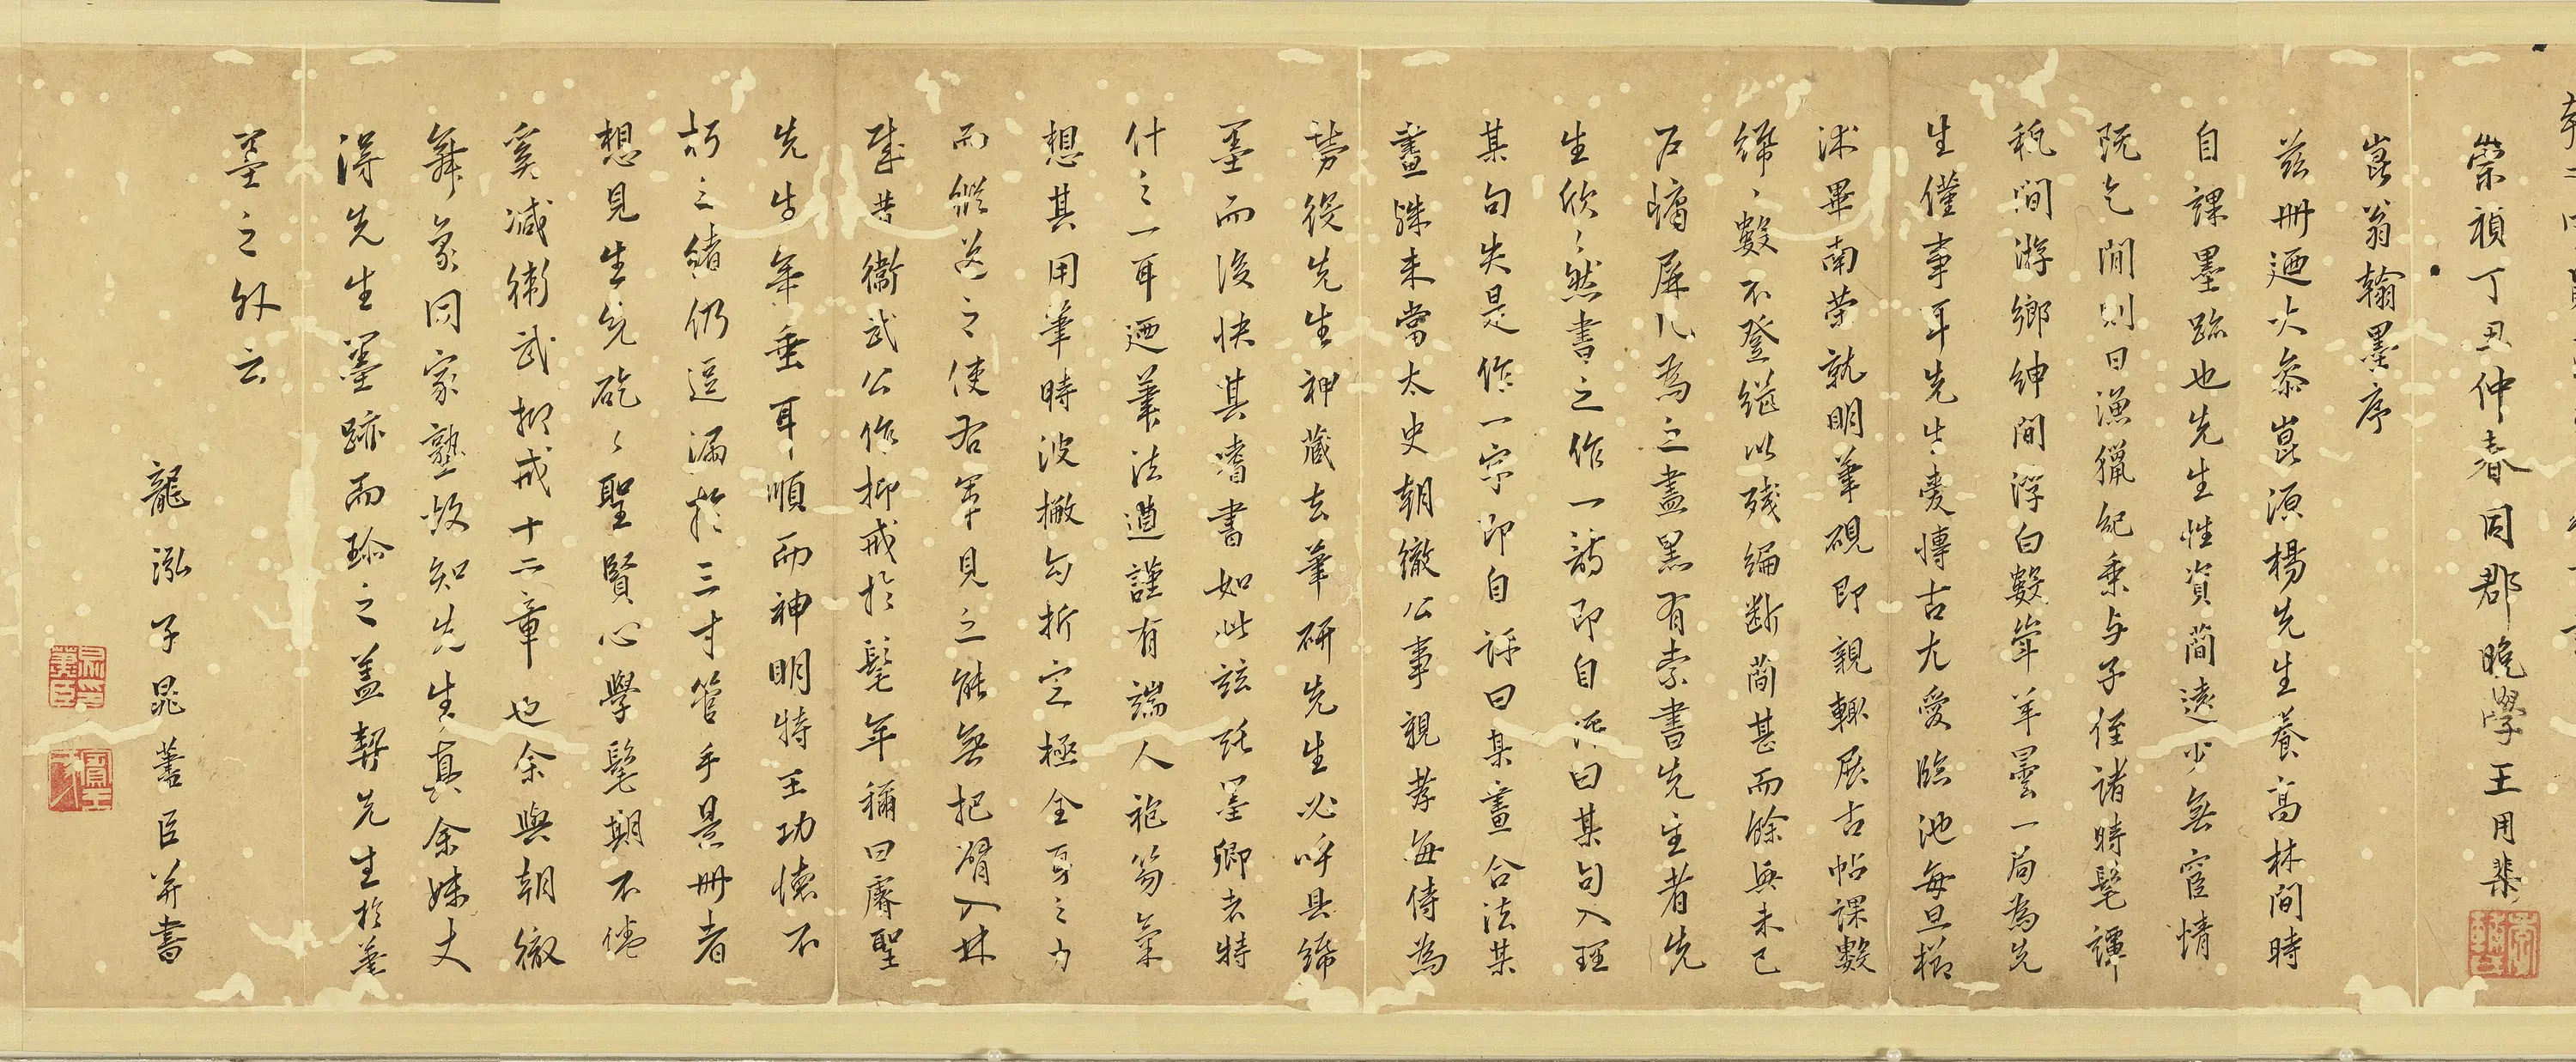 崇禎丁丑仲春同郡晚學王用
崑翁翰墨序
茲冊迺大參崑源楊先生養高林間時
自課墨跡也先生性資簡遠少無宦情
既乞閒則日漁獵紀乘与子侄諸時髦譚
稅間游鄉紳間浮白數觥羊曇一局為先
生僅事耳先生博古尤愛臨池每旦櫛
沭畢南榮就明筆硯即親輒展古帖課數
絺數不登繼以殘編斷簡甚而餘興未已
屏几為之盡黑有索書先生者先
生欣々然書之作一韵即自評曰某句入理
某句失是作一字即自評曰某畫合法某
畫殊未當太史朝徹公事親孝每侍為
勞從先生神藏去筆研先生必呼具絺
墨而後快其嗜書如此玆託墨卿者特
什之一耳迺筆法遒謹有端人袍笏氣
想其用筆時波撇勾折定極全身之力
而縱送之使右軍見之能無把臂入林
昔衛武公作抑戒於髦年稱曰睿聖
先生年垂耳順而神明特王功懷不
朽之緒仍逗漏於三寸管手是冊者
想見先生矻々聖賢心學髦期不倦
奚減衛武抑戒十二章也余與朝徹
舞象同家塾故知先生真余妹丈
得先生墨跡而珍之蓋契先生於筆
墨之外云
龍泓子晁藎臣并書